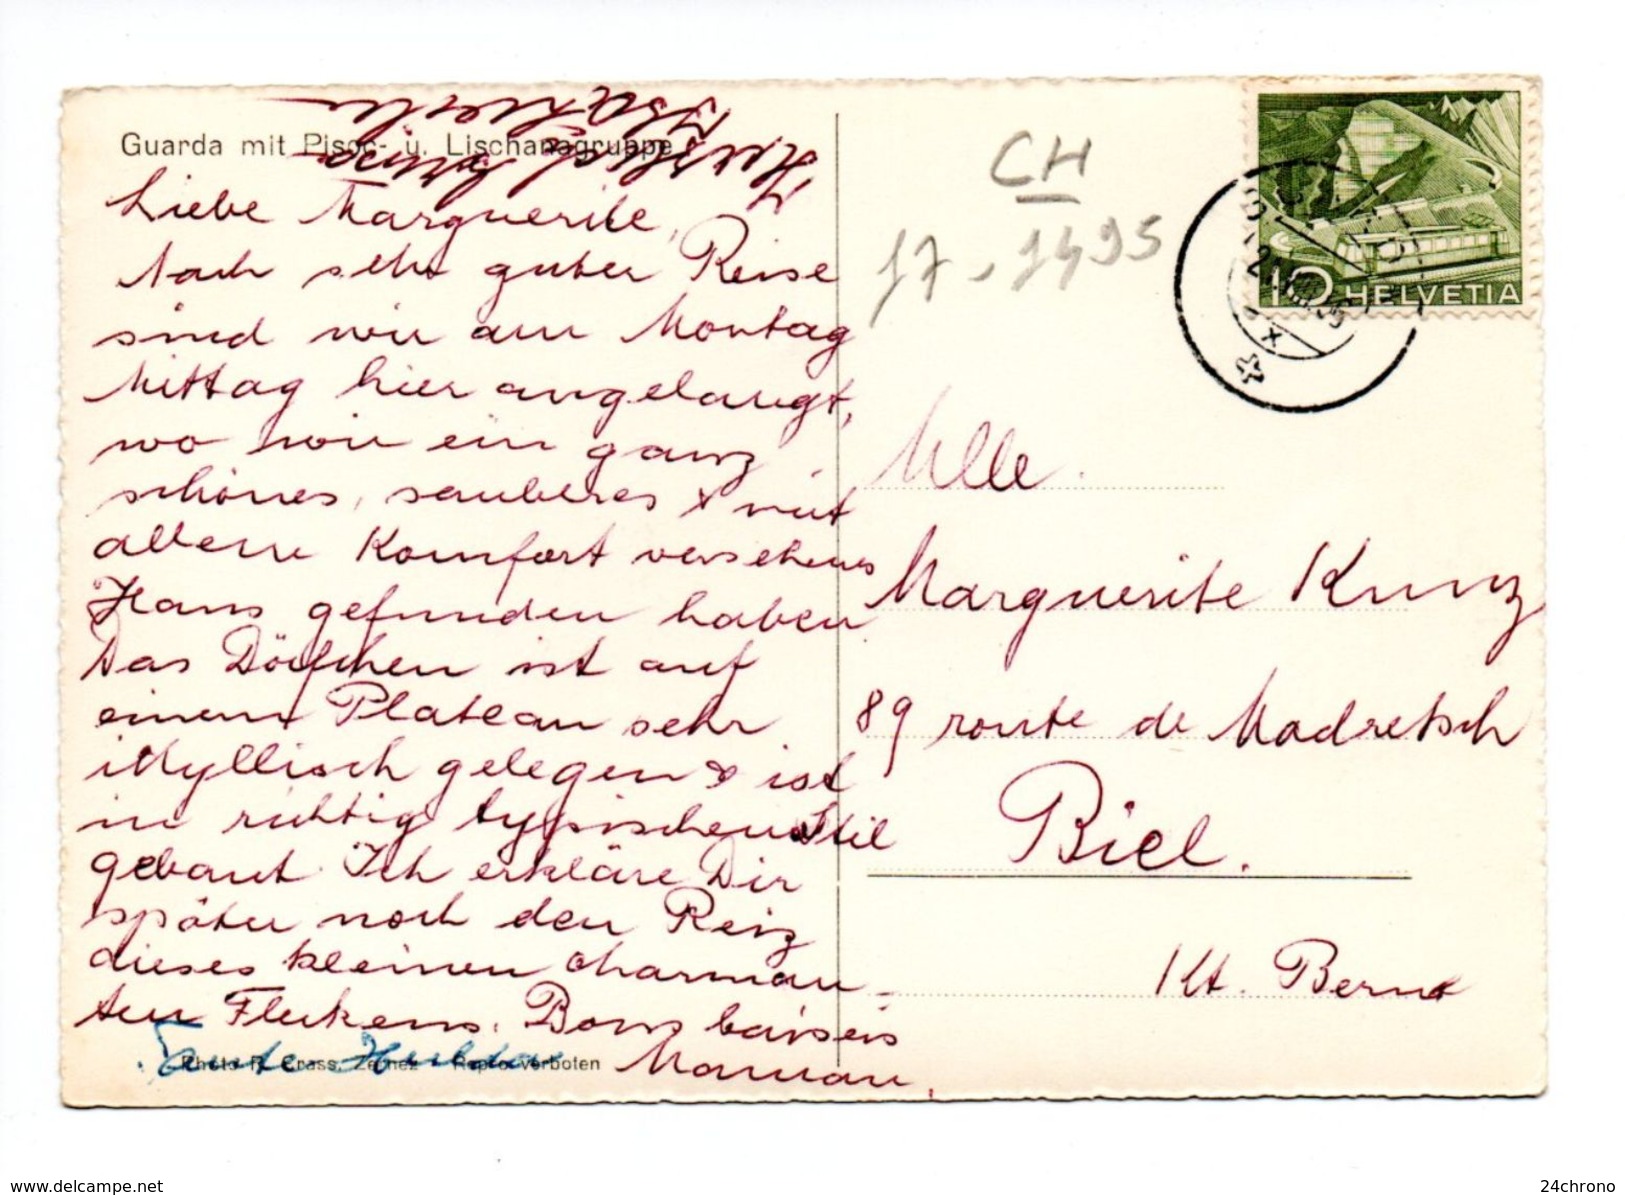 Guarda mit Pisoc- u. Lischanagruppe
Liebe Marguerite,
Nach sehr guter Reise
sind wir am Montag
Mittag hier angelangt,
wo wir ein ganz
schönes, sauberes & mit
allem Komfort versehenes
Haus gefunden haben
Das Dörfchen ist auf
einem Plateau sehr
idyllisch gelegen & ist
in richtig typischem Stil
gebaut. Ich erkläre Dir
später noch den Reiz
dieses kleinen charman-
ten Fleckens. Bons baisers
Maman.
Tante
Photo R. Grass, Zernez Repro. verboten
CH
17 - 1495
HELVETIA
Mlle.
Marguerite Kunz
89 route de Madretsch
Biel.
Kt. Bern
delcampe.net
24chrono